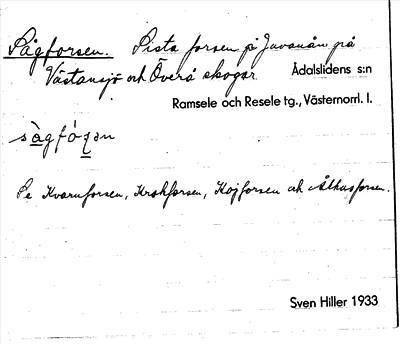 Sågforsen. Sista forsen på Juvanån på
Västansjö och Överå skogar. Ådalslidens s:n
Ramsele och Resele tg., Västernorrl. l.
sàgfóʐən
Se Kvarnforsen, Krokforsen, Kojforsen och Ålkusforsen.
Sven Hiller 1933